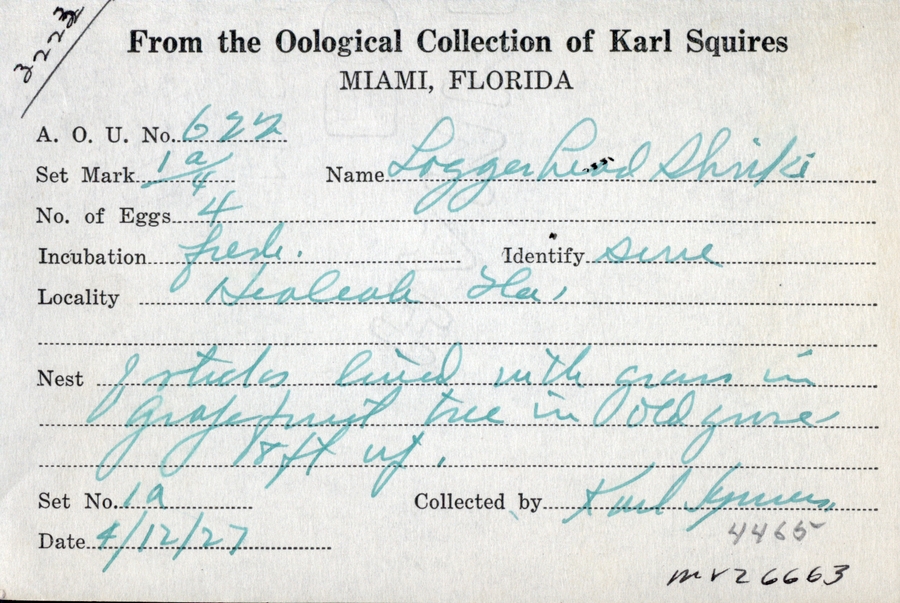 3223
From the Oological Collection of Karl Squires
MIAMI, FLORIDA
A. O. U. No. 622
Set Mark 1a/4 Name Loggerhead Shrike
No. of Eggs 4
Incubation fresh. Identify sure
Locality Hialeah Fla.
Nest of sticks lined with grass in
grapefruit tree in old grove
8 ft up.
Set No. 1a Collected by Karl Squires
4465
Date 4/12/27
mvz6663